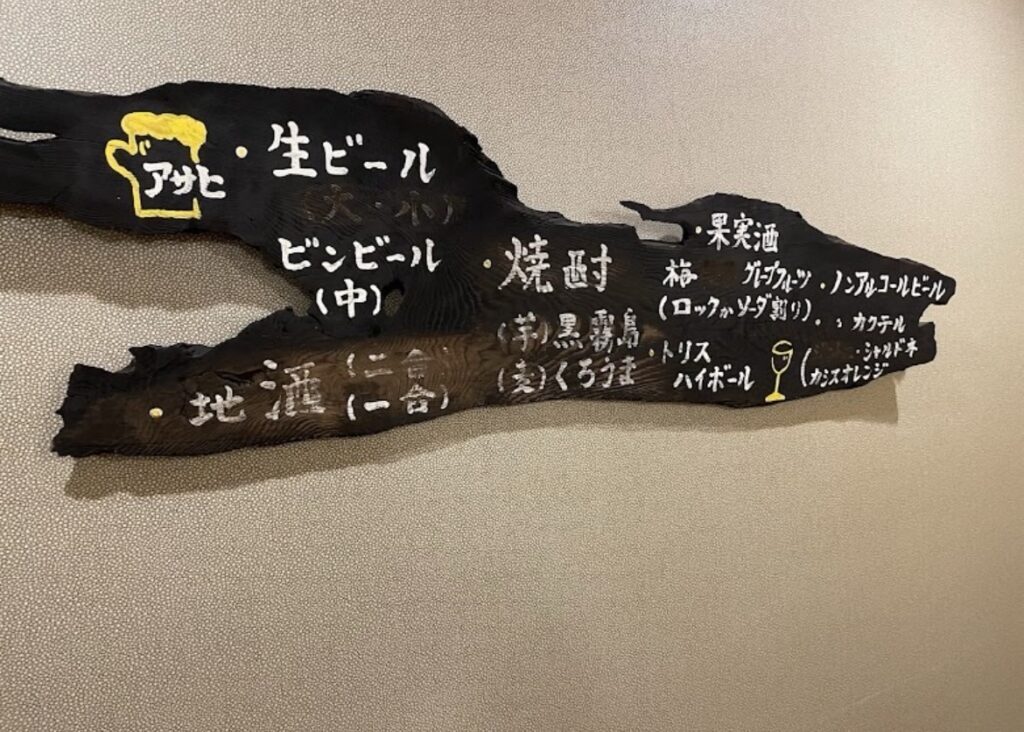 アサヒ
・生ビール
(大・小)
ビンビール
(中)
・地酒 (二合)
(一合)
・焼酎
(芋)黒霧島
(麦)くろうま
・果実酒
梅 グレープフルーツ
(ロックかソーダ割り)
・トリス
ハイボール
・ノンアルコールビール
・〃 カクテル
(・シャルドネ
カシスオレンジ